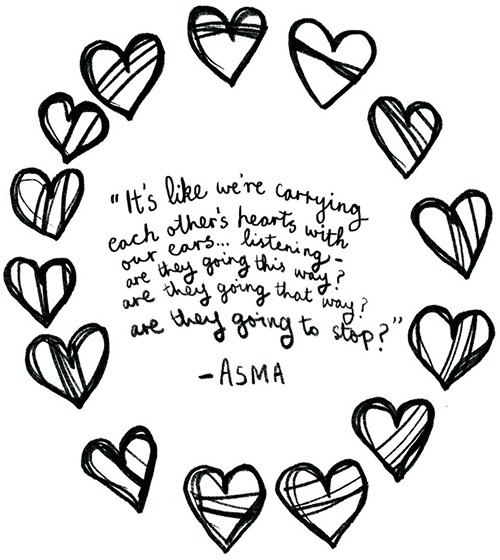 "It's like we're carrying
each other's hearts with
our ears... listening-
are they going this way?
are they going that way?
are they going to stop?"
- ASMA